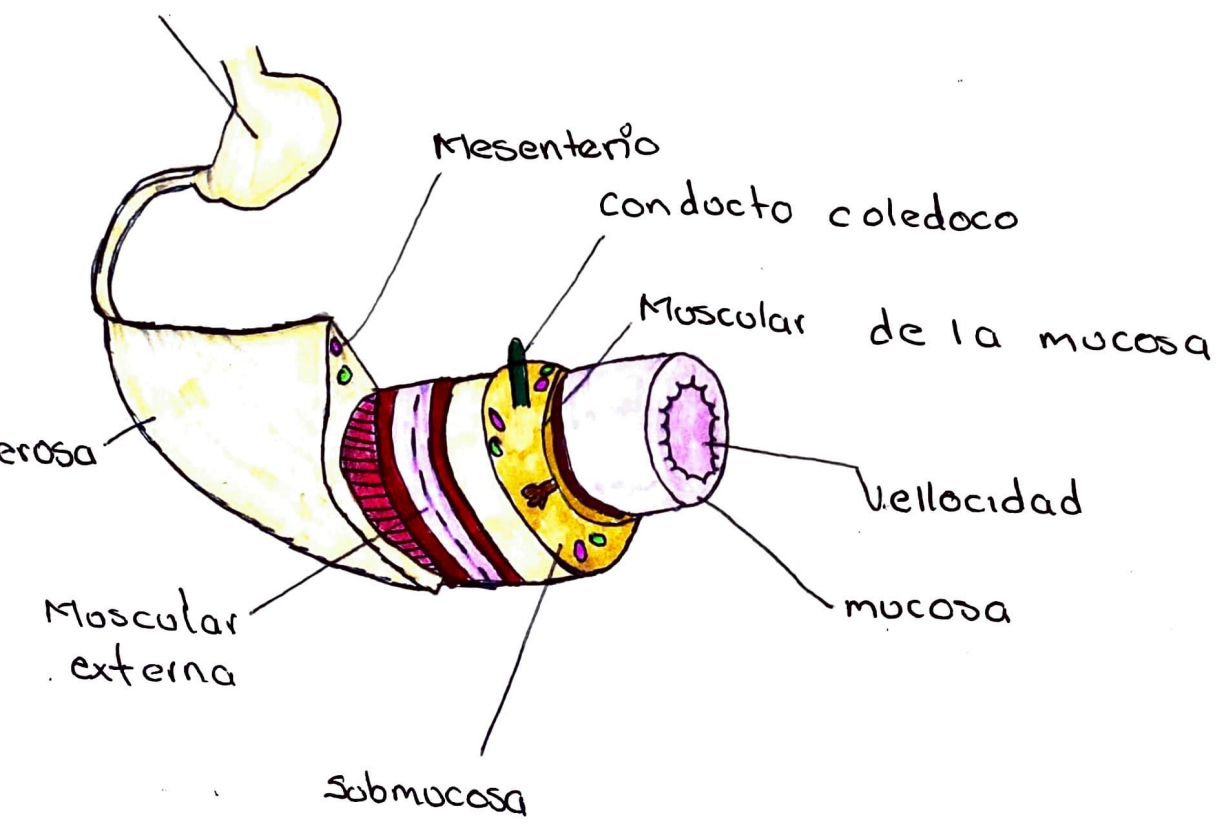 Mesenterio
conducto coledoco
Muscular de la mucosa
erosa
Vellocidad
mucosa
Muscular
externa
Submucosa